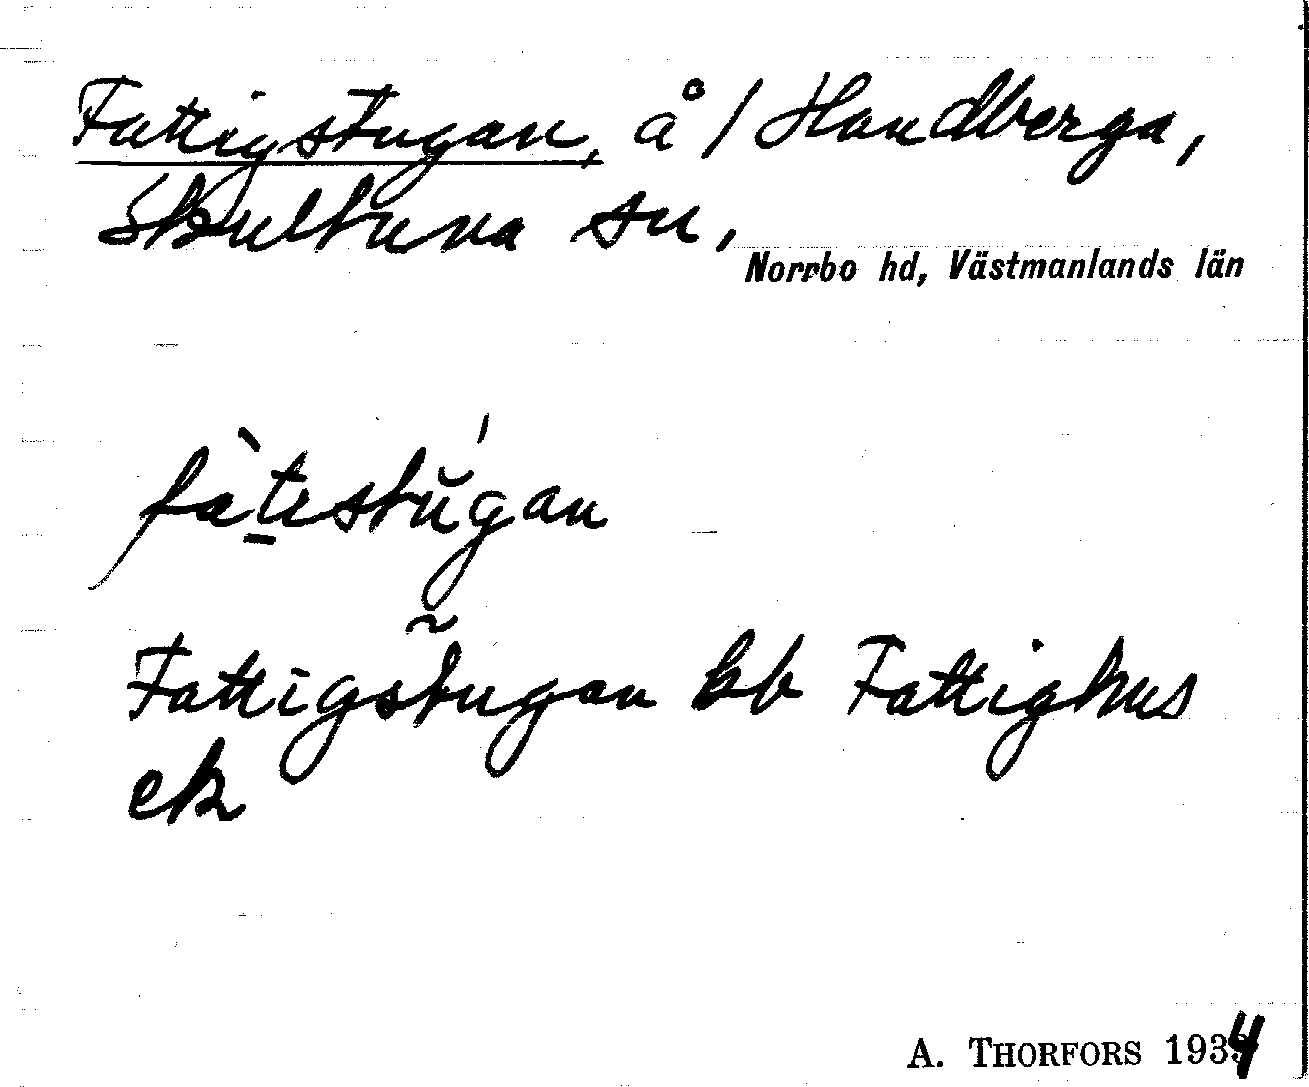 Fattigstugan, å / Handberga,
Skultuna sn,
Norrbo hd, Västmanlands län
fàtistŭ́gan
Fattigstugan bb Fattighus
ek
A. THORFORS 1934